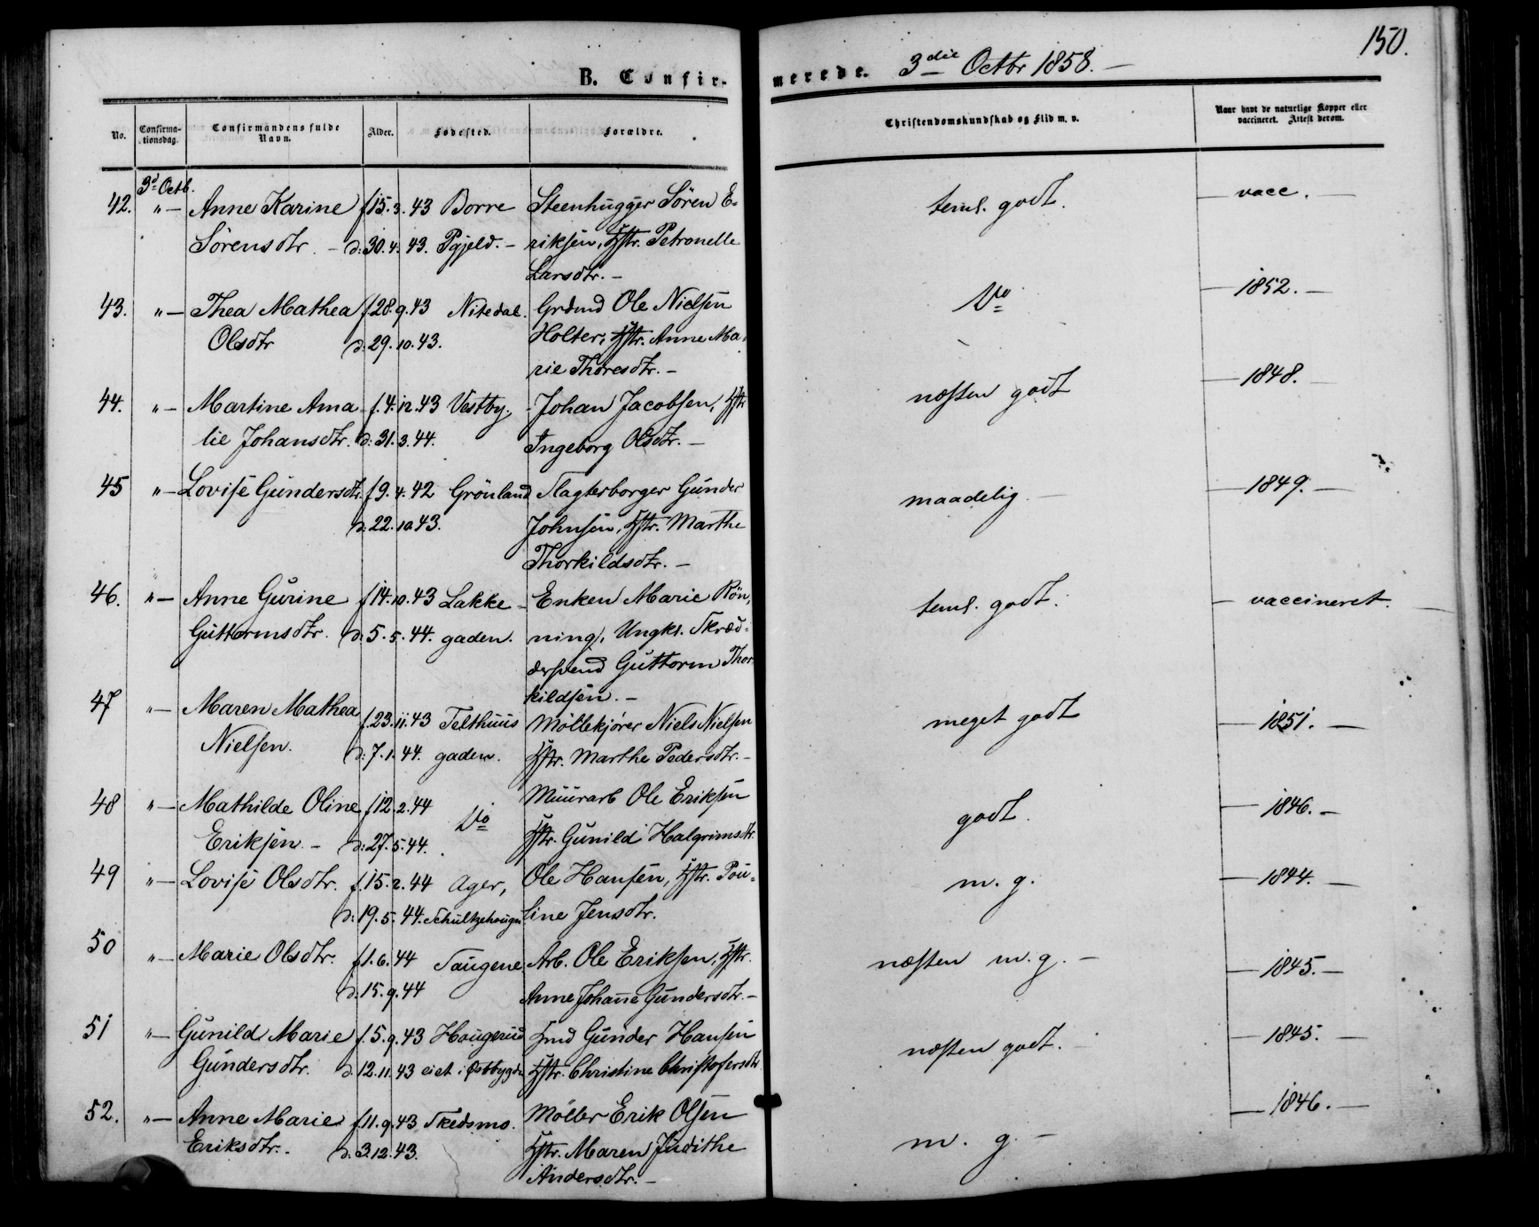 150.
B. Confirmerede. 3die Octbr 1858. —
No. Confirmationsdag. Confirmandens fulde Navn. Alder. Fødested. Forældre. Christendomskundskab og Flid m. v. Naar havt de naturlige Kopper eller vaccineret. Attest derom.
3d Octb.
42. " — Anne Karine f. 15. 3. 43 Borre Steenhugger Sören E- teml. godt. — vacc. —
Sörensdtr. — d. 30. 4. 43. Pgjeld. — riksen, Hstr. Petronelle
Larsdtr. —
43. " — Thea Mathea f. 28. 9. 43 Nitedal. Grdmd Ole Nielsen Do — 1852. —
Olsdtr d. 29. 10. 43. Holter, Hstr. Anne Ma-
rie Thoresdtr. —
44. " — Martine Ama f. 4. 12. 43 Vestby. Johan Jacobsen, Hstr næsten godt — 1848. —
lie Johansdtr. d. 31. 3. 44. Ingeborg Olsdtr. —
45 " — Lovise Gundersdtr. f. 9. 4. 42 Grönland Slagterborger Gunder maadelig. — — 1849. —
d. 22. 10 43. Johnsen, Hstr. Marthe
Thorkildsdtr. —
46. " — Anne Gurine f. 14. 10. 43 Lakke- Enken Marie Rön, teml. godt. — vaccineret. —
Guttormsdtr. d. 5. 5. 44. gaden. ning, Ungk. Skræd-
dersvend Guttorm Thor
kildsen. —
47 " — Maren Mathea f. 23. 11. 43 Telthuus Möllekjører Niels Nielsen meget godt — 1851. —
Nielsen. d. 7. 1. 44. gaden. Hstr. Marthe Pedersdtr. —
48 " — Mathilde Oline f. 12. 2. 44 Do Muurarb Ole Eriksen godt. — 1846. —
Eriksen. — d. 27. 5. 44. Hstr. Gunild Halgrimsdtr.
49 " — Lovise Olsdtr. f. 15. 2. 44 Ager, Ole Hansen, Hstr. Pou- m. g. — 1844. —
d. 19. 5. 44. Schultzehougen line Jensdtr.
50 " — Marie Olsdtr. f. 1. 6. 44 Saugene Arb. Ole Eriksen, Hstr. næsten m. g. — — 1845. —
d. 15. 9. 44 Anne Johanne Gundersdtr. —
51 " — Gunild Marie f. 5. 9. 43 Hougerud Hmd Gunder Hansen næsten godt. — — 1845. —
Gundersdtr. d. 12. 11. 43 eiet i Østbygda Hstr. Christine Christofersdtr
52. " — Anne Marie f. 11. 9. 43 Skedsmo. Möller Erik Olsen m. g. — — 1846. —
Eriksdtr. d. 3. 12. 43. Hstr. Maren Judithe
Andersdtr. —